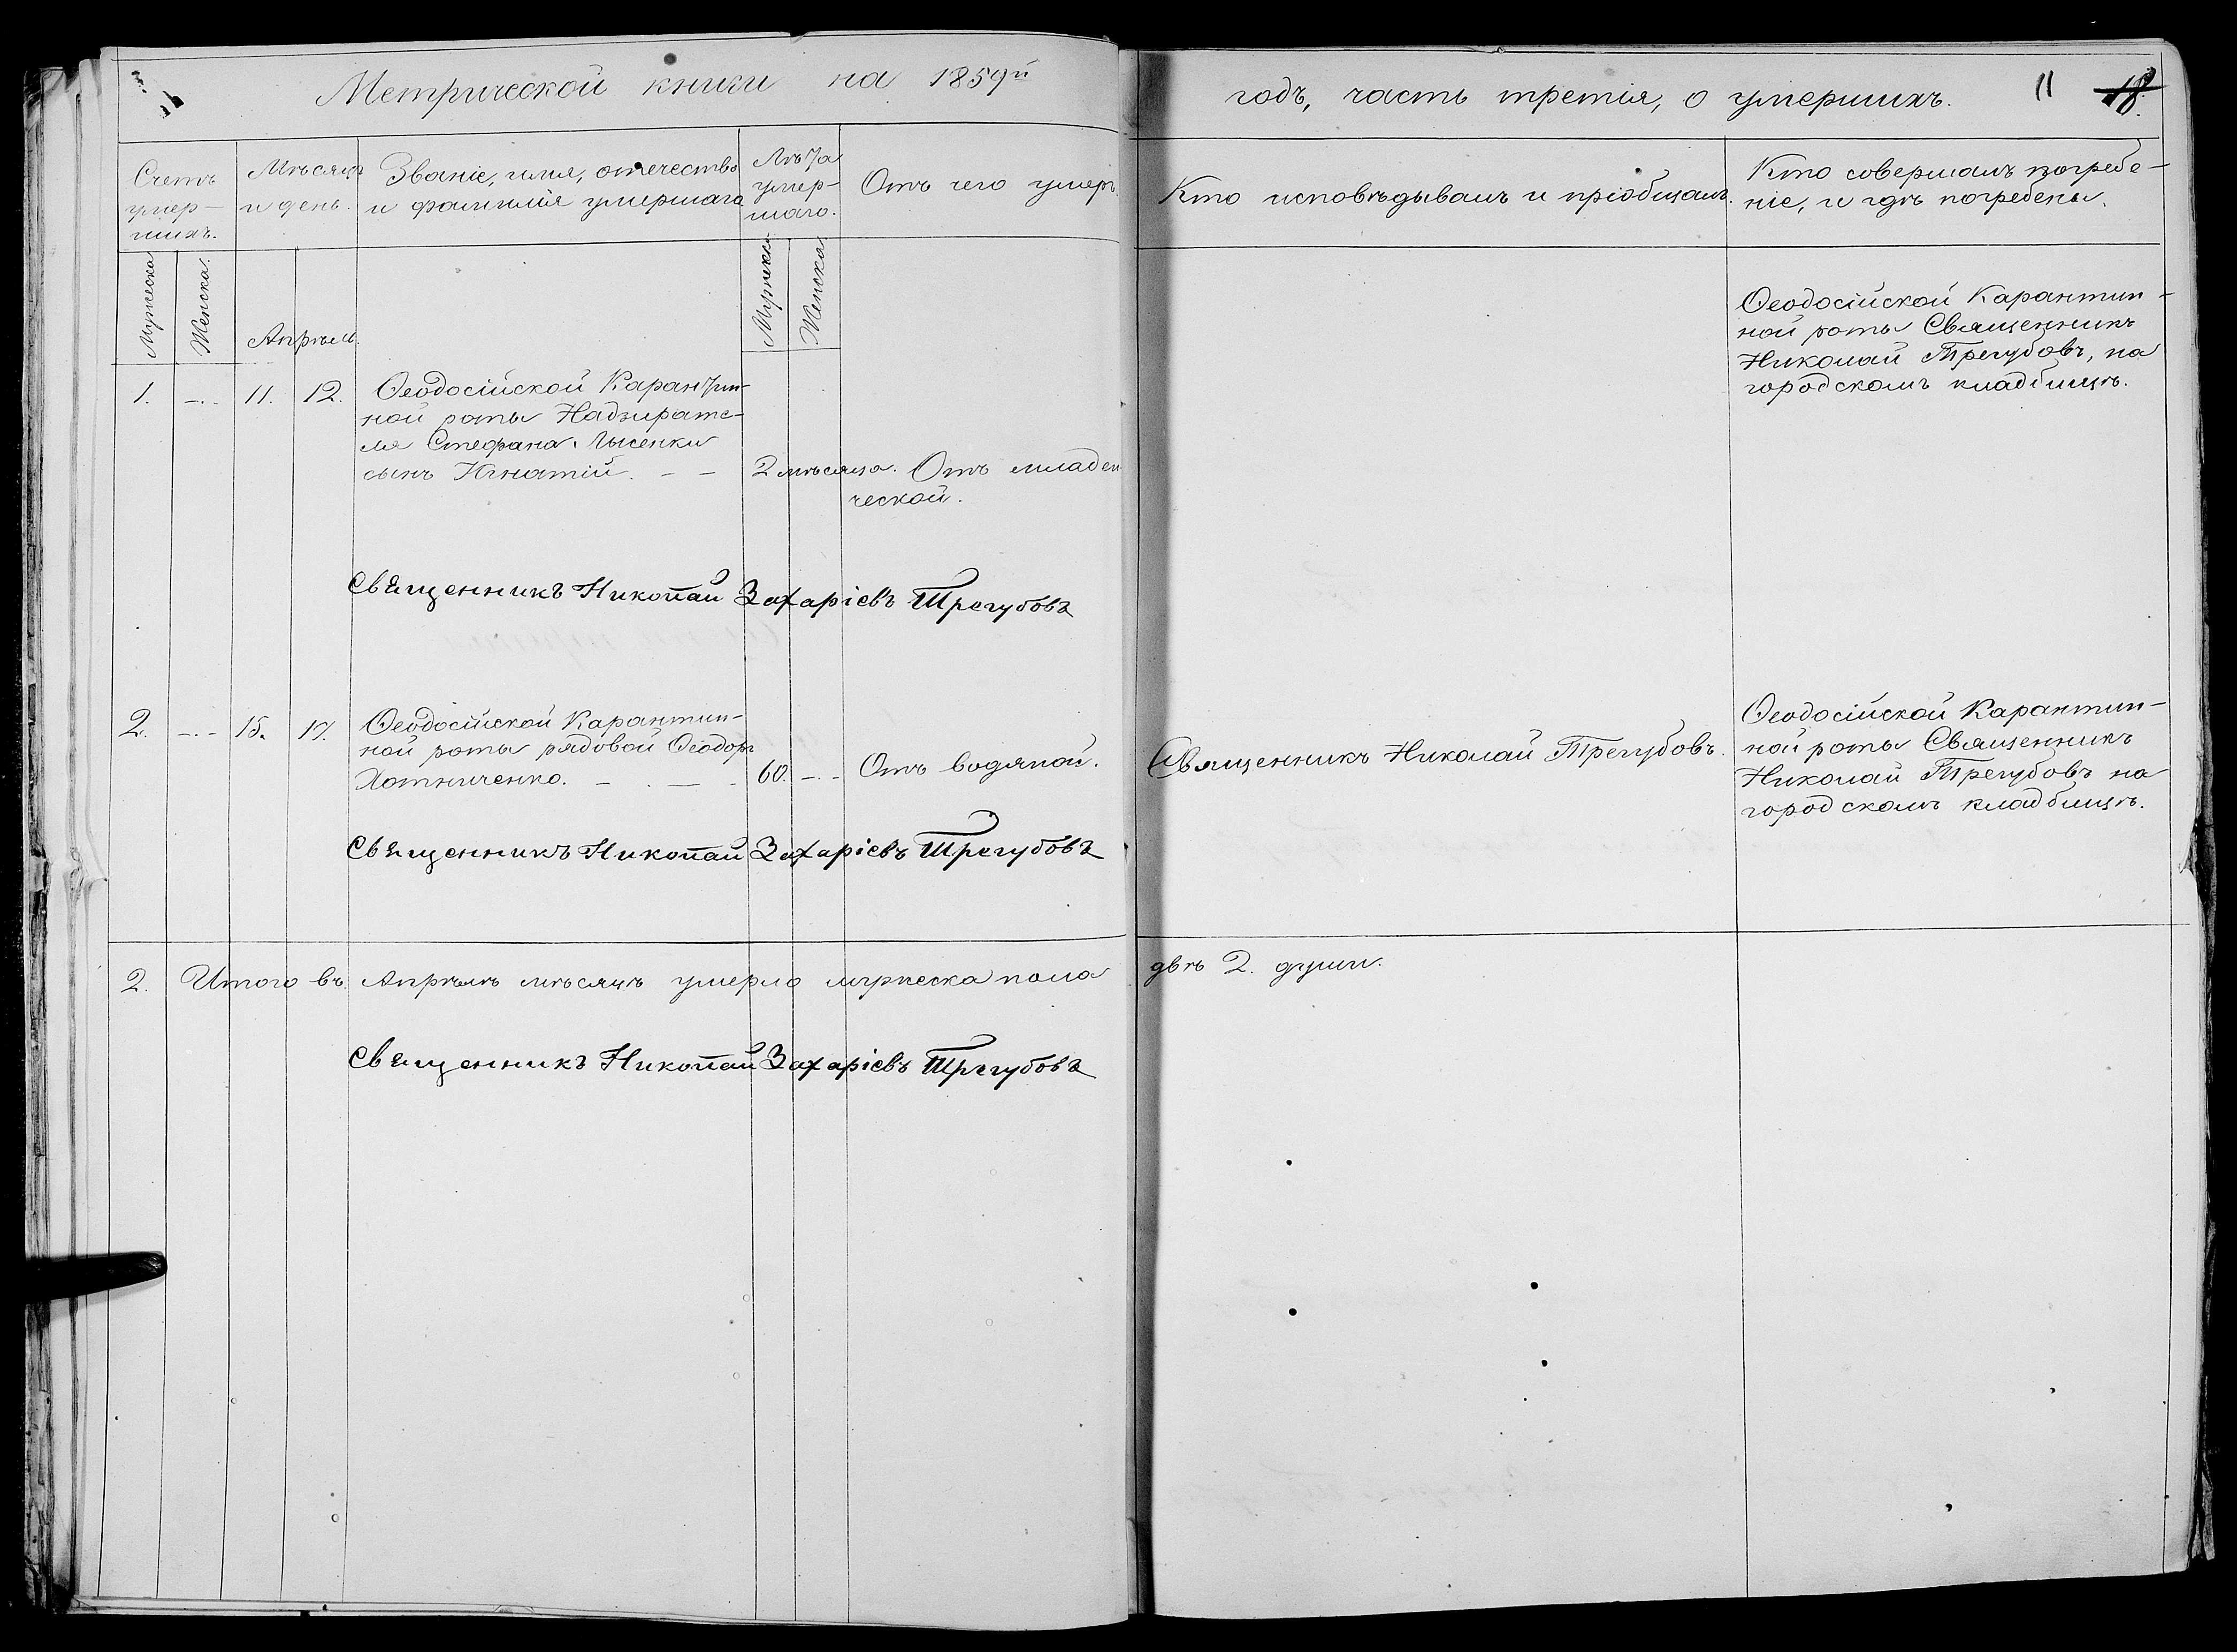 Метрической книги на 1859й
годъ, часть третія, о умершихъ.
11 18.
Счетъ
умер-
шихъ.
Мѣсяцъ
и день.
Званіе, имя, отечество
и фамилія умершаго
Лѣта
умер-
шаго.
Отъ чего умеръ.
Кто исповѣдывалъ и пріобщалъ.
Кто совершалъ погребе-
ніе, и гдѣ погребены.
Мужеска
Женска.
Апрѣль.
Мужеска
Женска
1. -.- 11. 12.
Ѳеодосійской Карантин-
ной роты Надзирате-
ля Стефана Лысенки
сынъ Игнатій. — — 2 мѣсяца. Отъ младен
ческой.
Ѳеодосійской Карантин-
ной роты Священникъ
Николай Трегубовъ, на
городскомъ кладбищѣ.
Священникъ Николай Захаріевъ Трегубовъ
2. -.- 15. 17.
Ѳеодосійской Карантин-
ной роты рядовой Ѳеодоръ
Хотниченко. — . — - 60. -.- Отъ водяной.
Священникъ Николай Трегубовъ.
Ѳеодосійской Карантин-
ной роты Священникъ
Николай Трегубовъ на
городскомъ кладбищѣ.
Священникъ Николай Захаріевъ Трегубовъ
2. Итого въ Апрѣлѣ мѣсяцѣ умерло мужеска пола двѣ 2. души.
Священникъ Николай Захаріевъ Трегубовъ